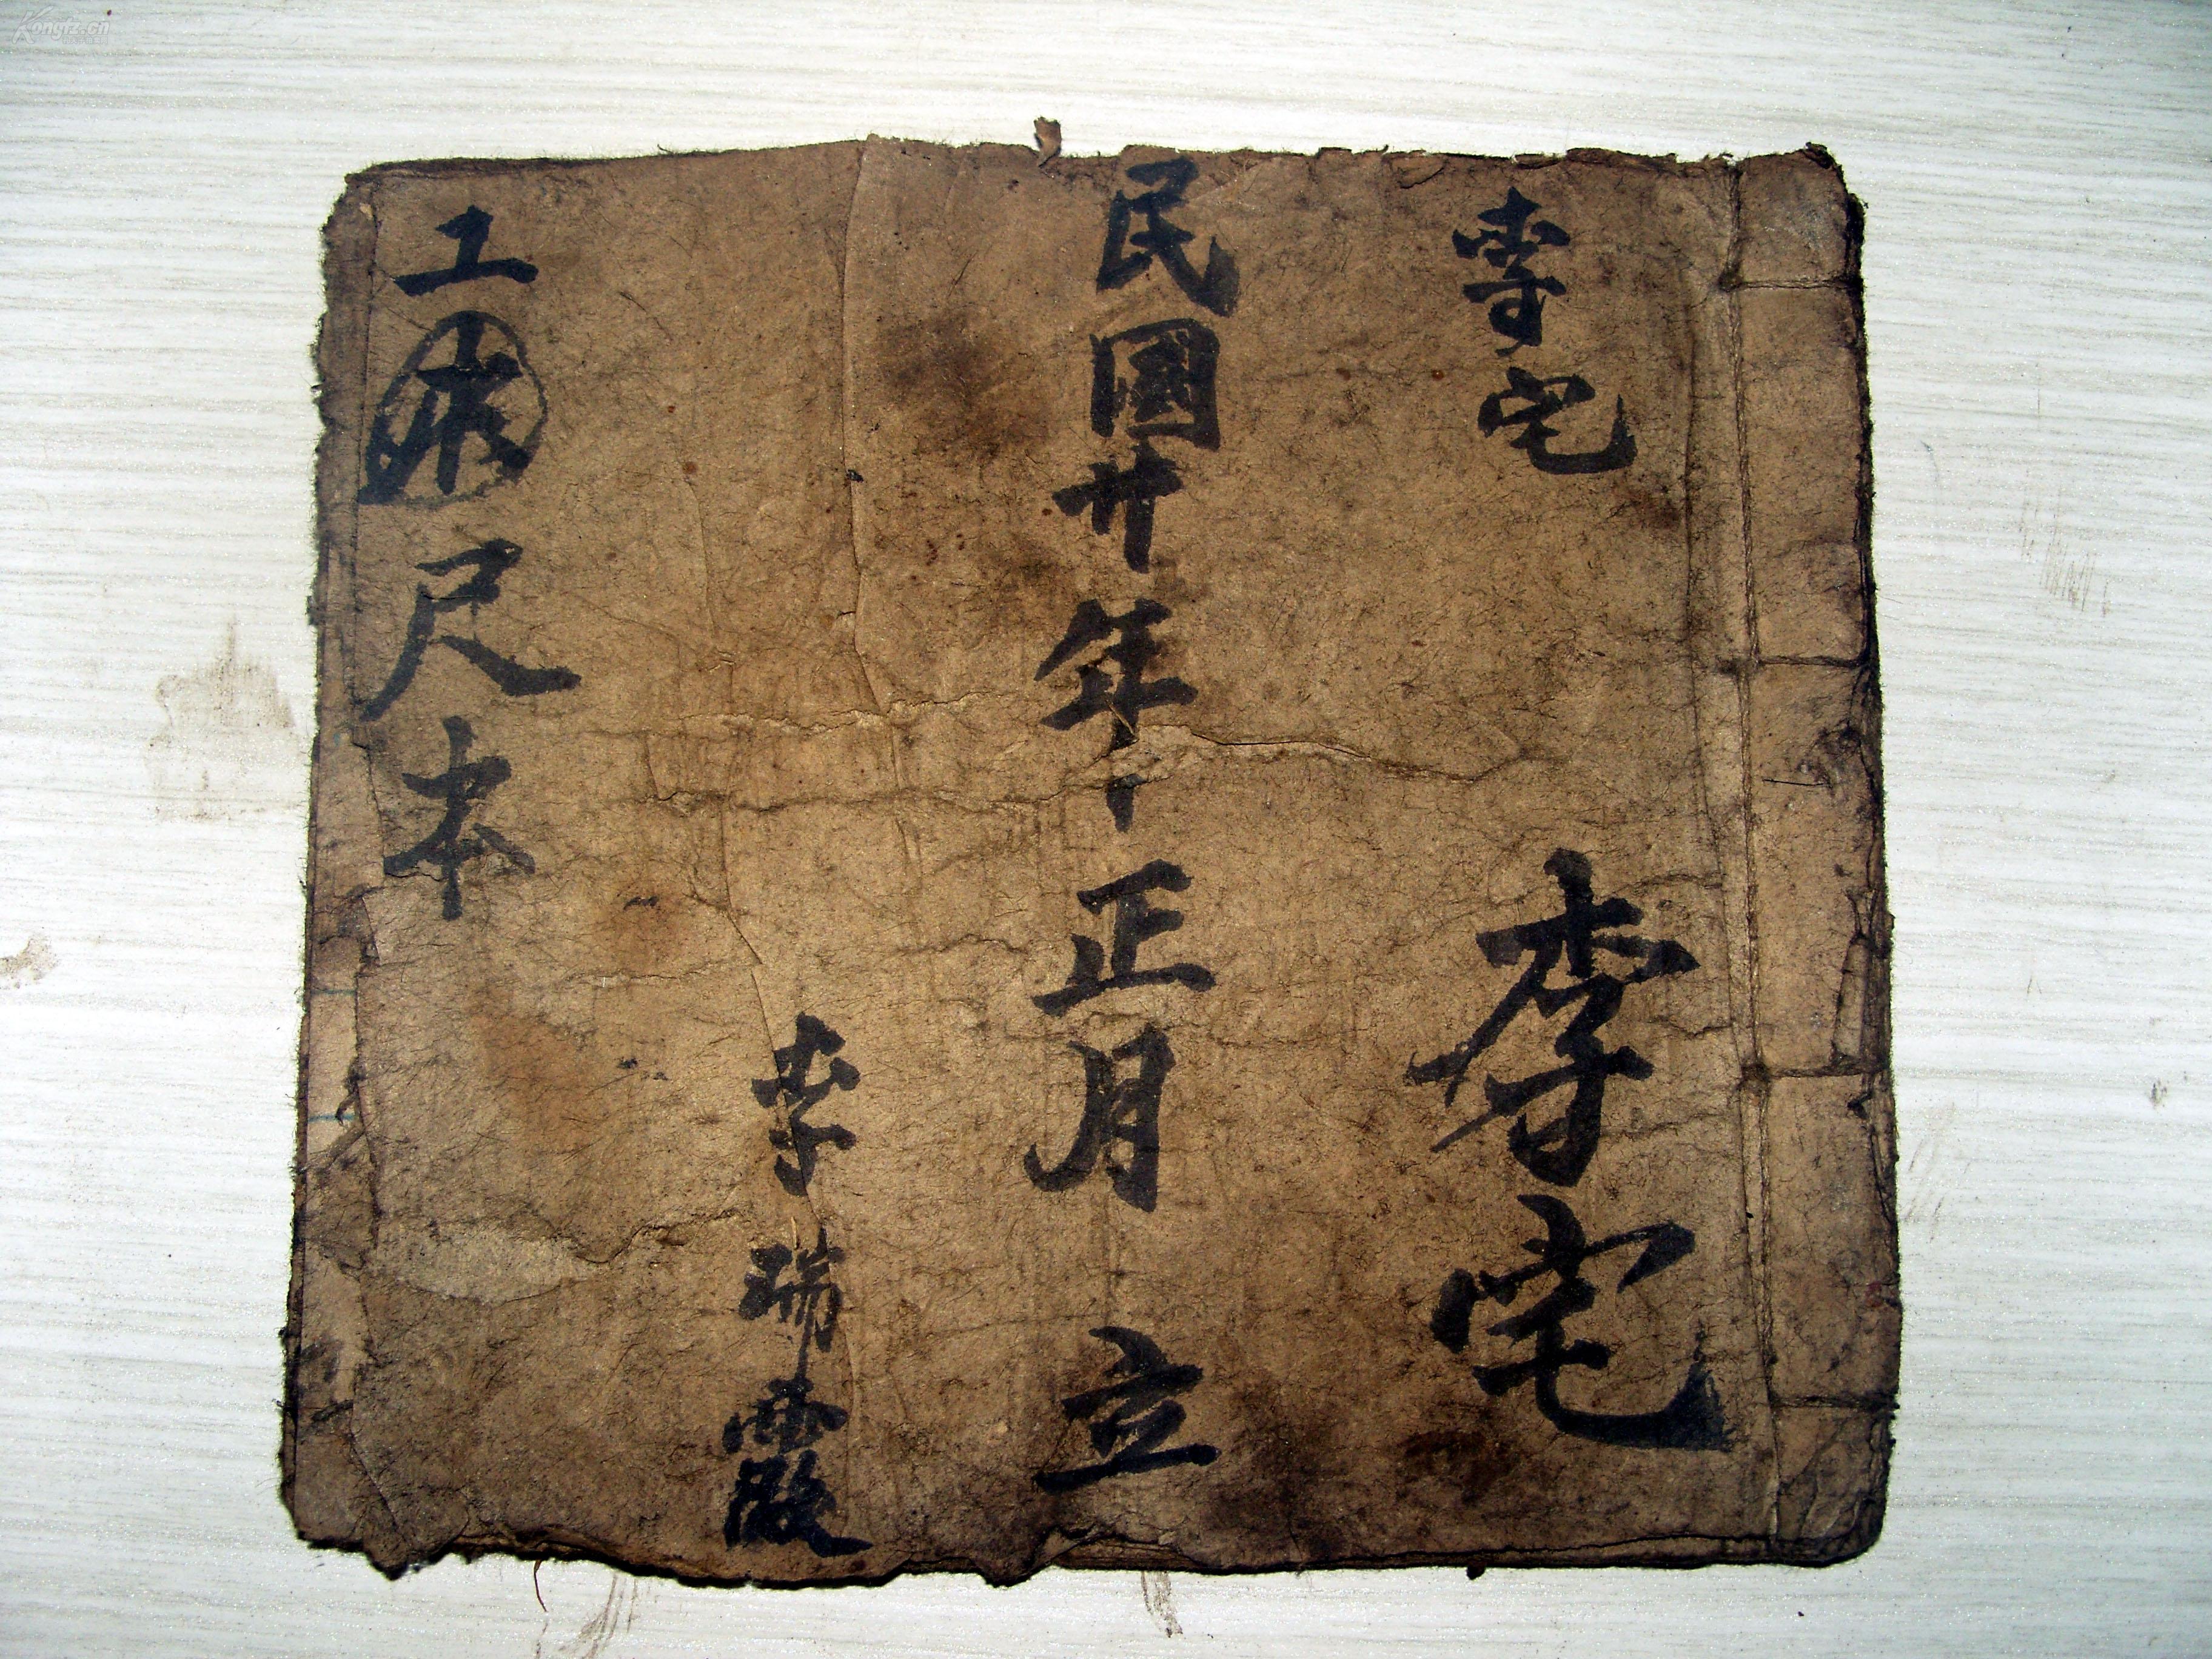 Kongfz.cn
李宅
李宅
民國廿年正月立
李瑞霞
工尺本